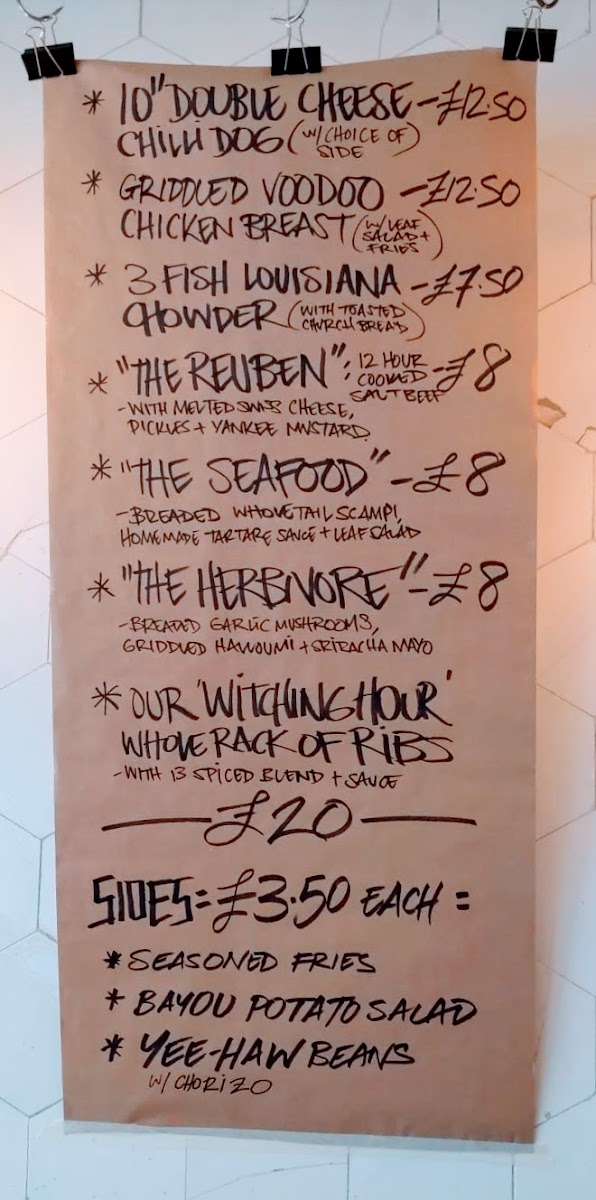 * 10" DOUBLE CHEESE - £12.50
CHILLI DOG (W/ CHOICE OF SIDE)
* GRIDDLED VOODOO - £12.50
CHICKEN BREAST (W/ LEAF SALAD + FRIES)
* 3 FISH LOUISIANA - £7.50
CHOWDER (WITH TOASTED CHURCH BREAD)
* "THE REUBEN"; 12 HOUR COOKED SALT BEEF - £8
- WITH MELTED SWISS CHEESE,
PICKLES + YANKEE MUSTARD.
* "THE SEAFOOD" - £8
- BREADED WHOLETAIL SCAMPI,
HOMEMADE TARTARE SAUCE + LEAF SALAD
* "THE HERBIVORE" - £8
- BREADED GARLIC MUSHROOMS,
GRIDDLED HALLOUMI + SRIRACHA MAYO
* OUR 'WITCHING HOUR'
WHOLE RACK OF RIBS
- WITH 13 SPICED BLEND + SAUCE
£20
SIDES = £3.50 EACH =
* SEASONED FRIES
* BAYOU POTATO SALAD
* YEE-HAW BEANS
W/ CHORIZO